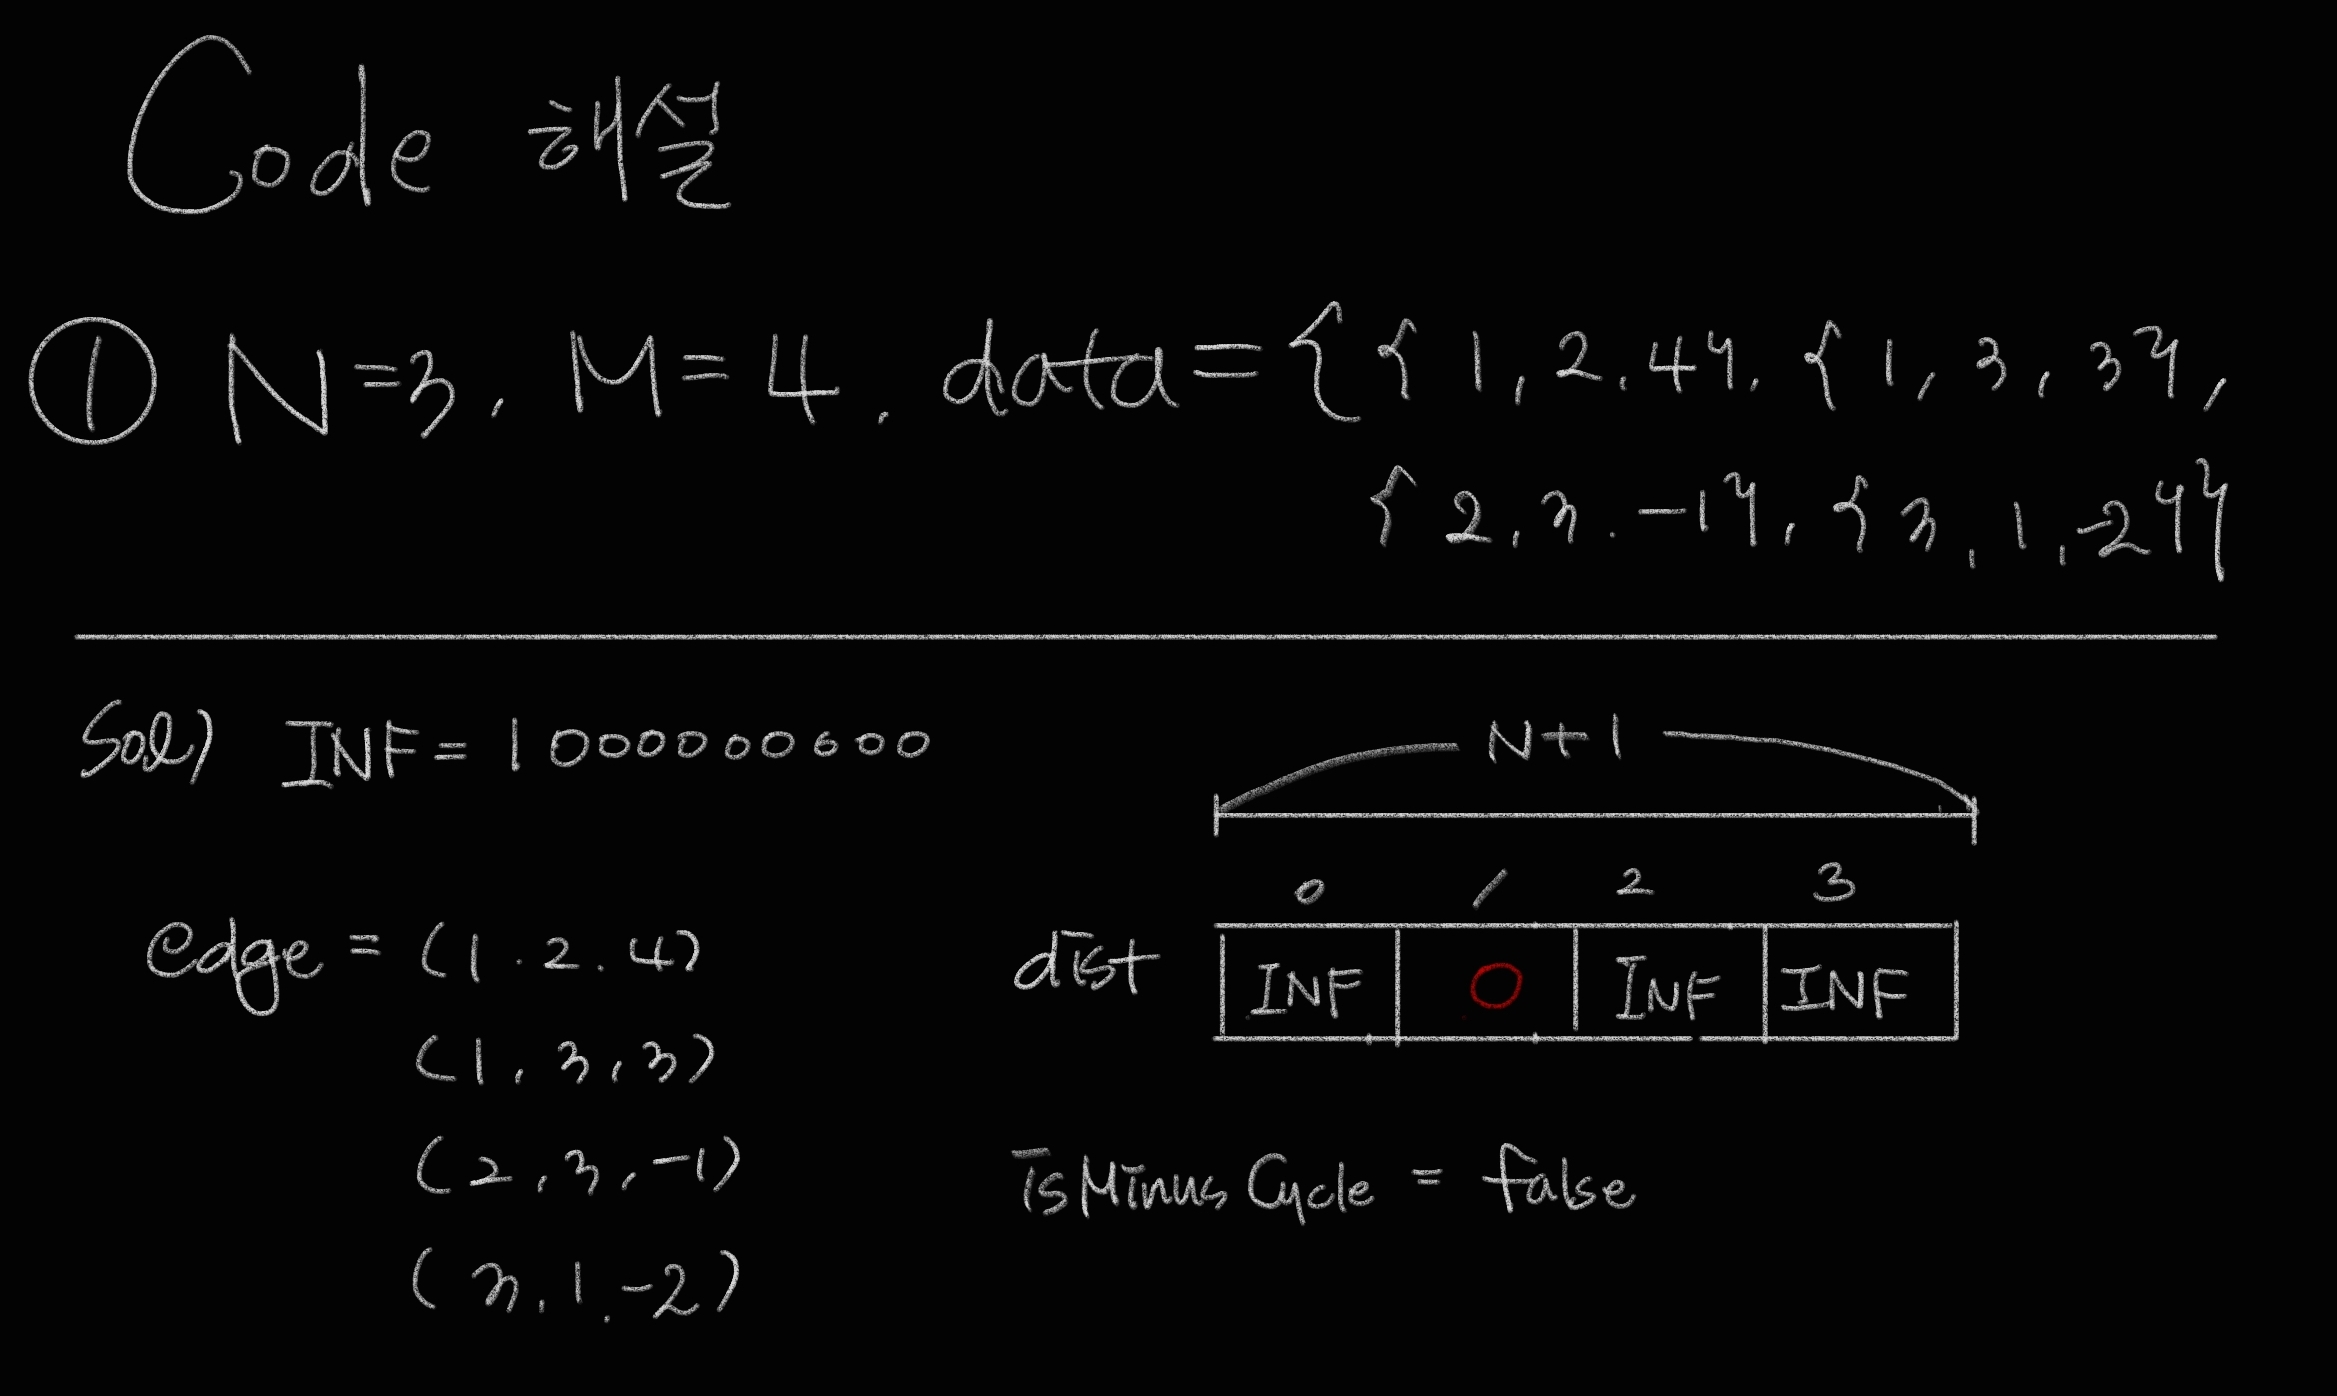 Code 해설
① N=3, M=4, data={{1,2,4}, {1,3,3},
{2,3,-1}, {3,1,-2}}
Sol) INF=1000000000
N+1
0 1 2 3
edge = (1,2,4)
dist INF 0 INF INF
(1,3,3)
(2,3,-1)
isMinusCycle = false
(3,1,-2)